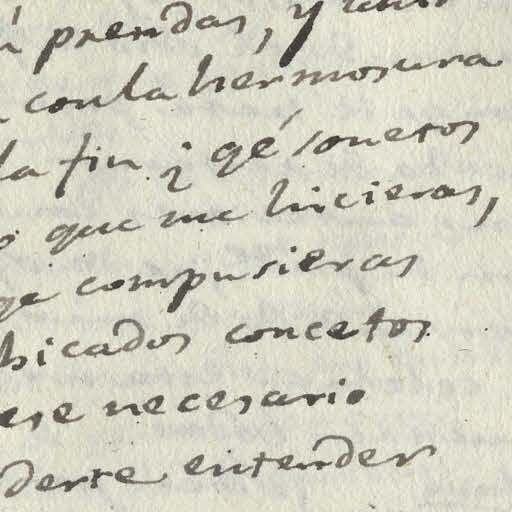 prendas, y
con la hermosura
la fin ¿ qé sonetos
que me hicieras,
qe compusieras
hicados concetos
ese necesario
derte entender